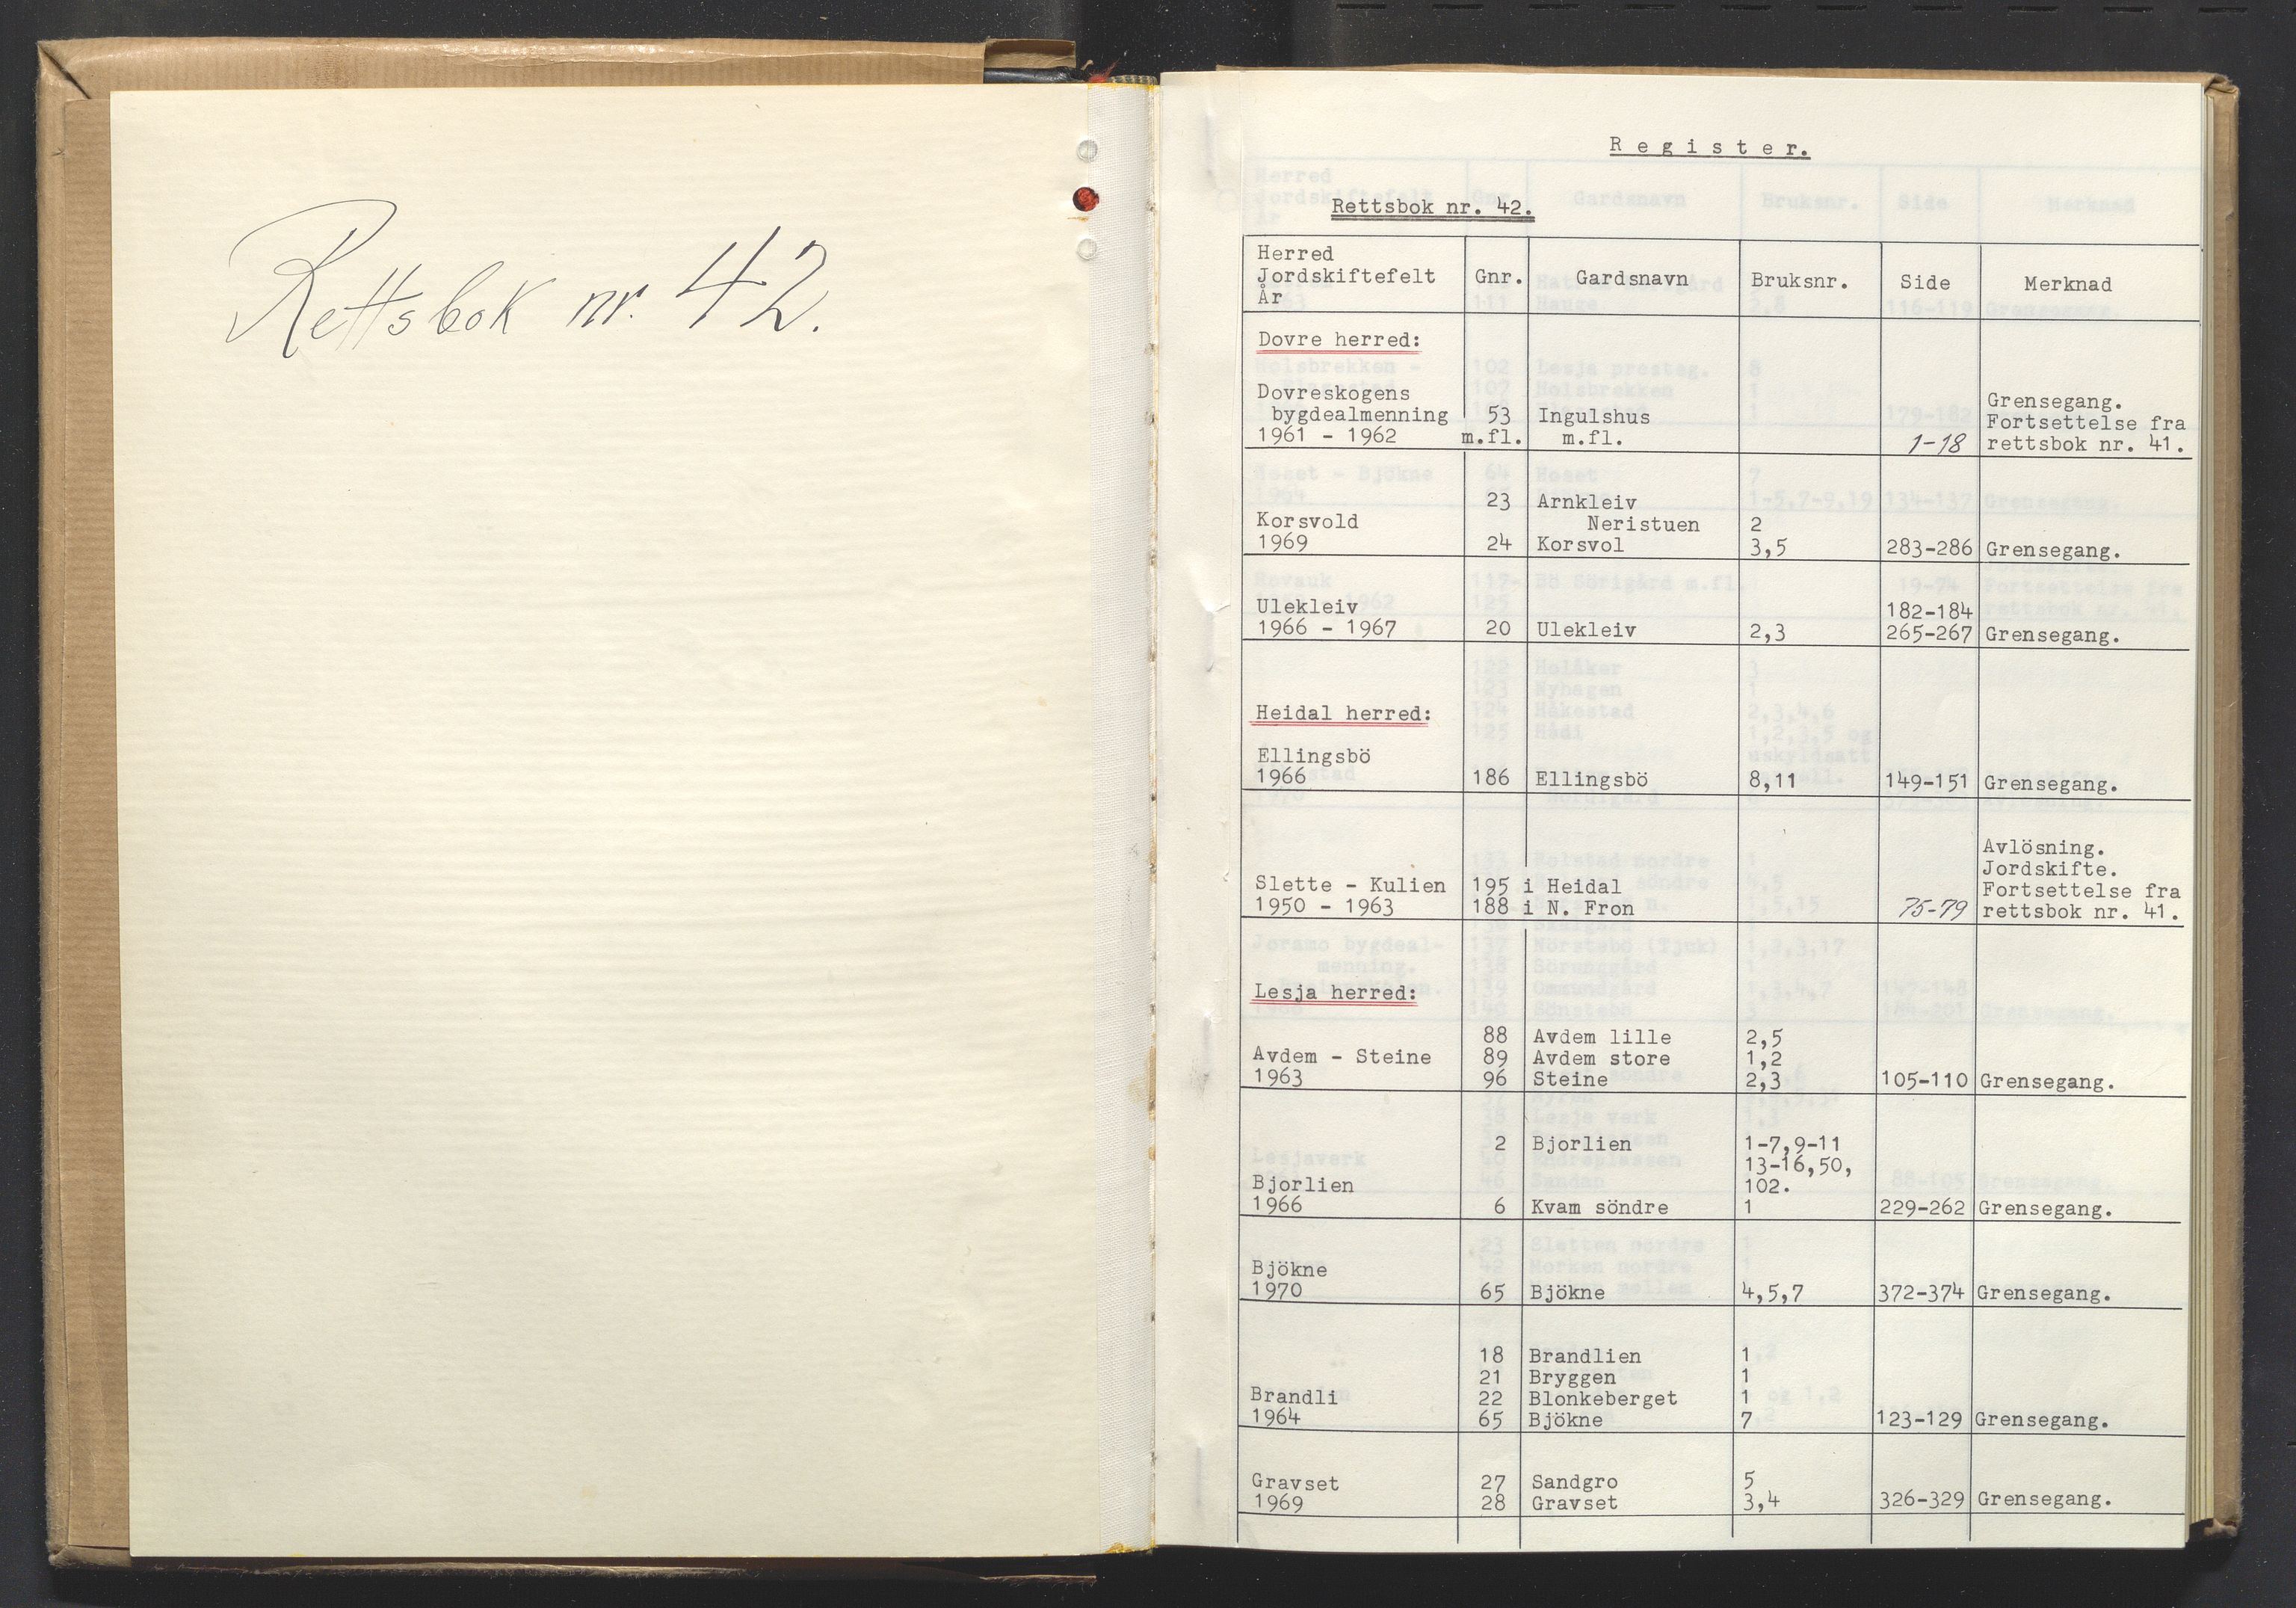 Rettsbok nr. 42.
Register.
Rettsbok nr. 42.
Herred
Jordskiftefelt
År
Gnr.
Gardsnavn
Bruksnr.
Side
Merknad
Dovre herred:
Dovreskogens
Grensegang.
bygdealmenning 53 Ingulshus Fortsettelse fra
1961 - 1962 m.fl. m.fl. 1-18 rettsbok nr. 41.
23 Arnkleiv
Korsvold Neristuen 2
1969 24 Korsvol 3,5 283-286 Grensegang.
Ulekleiv 182-184
1966 - 1967 20 Ulekleiv 2,3 265-267 Grensegang.
Heidal herred:
Ellingsbö
1966 186 Ellingsbö 8,11 149-151 Grensegang.
Avlösning.
Jordskifte.
Slette - Kulien 195 i Heidal Fortsettelse fra
1950 - 1963 188 i N. Fron 75-79 rettsbok nr. 41.
Lesja herred:
88 Avdem lille 2,5
Avdem - Steine 89 Avdem store 1,2
1963 96 Steine 2,3 105-110 Grensegang.
2 Bjorlien 1-7,9-11
13-16,50,
Bjorlien 102.
1966 6 Kvam söndre 1 229-262 Grensegang.
Bjökne
1970 65 Bjökne 4,5,7 372-374 Grensegang.
18 Brandlien 1
21 Bryggen 1
Brandli 22 Blonkeberget 1
1964 65 Bjökne 7 123-129 Grensegang.
Gravset 27 Sandgro 5
1969 28 Gravset 3,4 326-329 Grensegang.